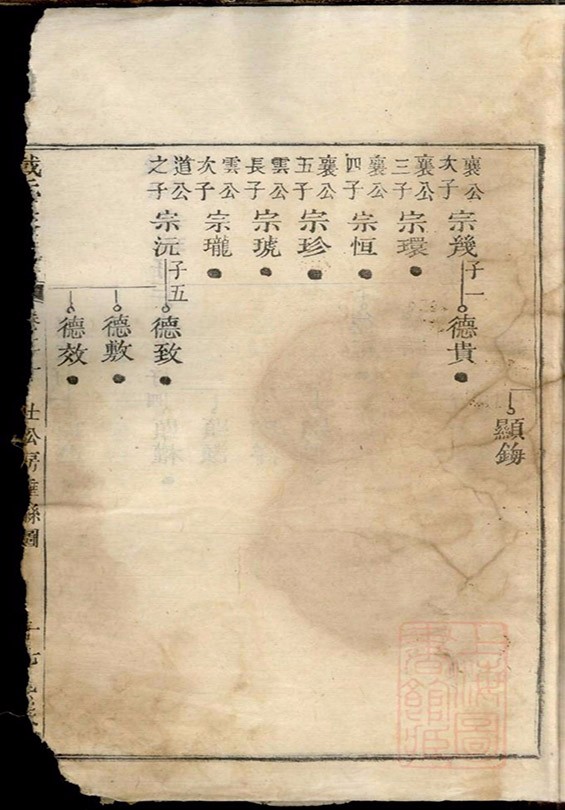 顯鋂
襄公次子 宗幾 子一 德貴
襄公三子 宗環
襄公四子 宗恒
襄公五子 宗珍
雲公長子 宗琥
雲公次子 宗瓏
道公之子 宗沅 子五 德致
德敷
德效
公房垂絲圖